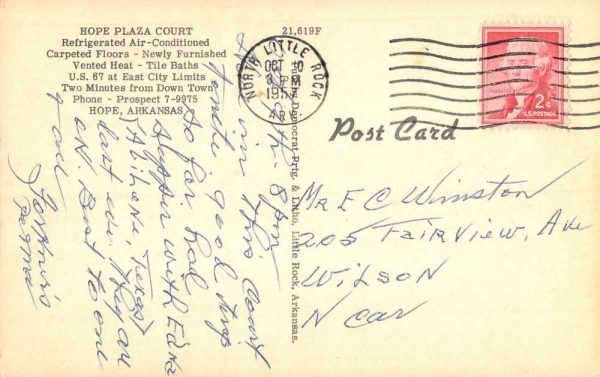 HOPE PLAZA COURT
Refrigerated Air-Conditioned
Carpeted Floors - Newly Furnished
Vented Heat - Tile Baths
U.S. 67 at East City Limits
Two Minutes from Down Town
Phone - Prospect 7-9975
HOPE, ARKANSAS
8 pm
in this court
good trip
So far had
supper with Edna
(Abilene, Texas)
last eve. They are
O.K. Best to one
& all
21,619F
Democrat Prtg. & Litho, Little Rock, Arkansas.
NORTH LITTLE ROCK
OCT 10
PM
ARK
2¢
U.S. POSTAGE
Post Card
Mr F C Winston
205 Fairview, Ave
Wilson
N Car